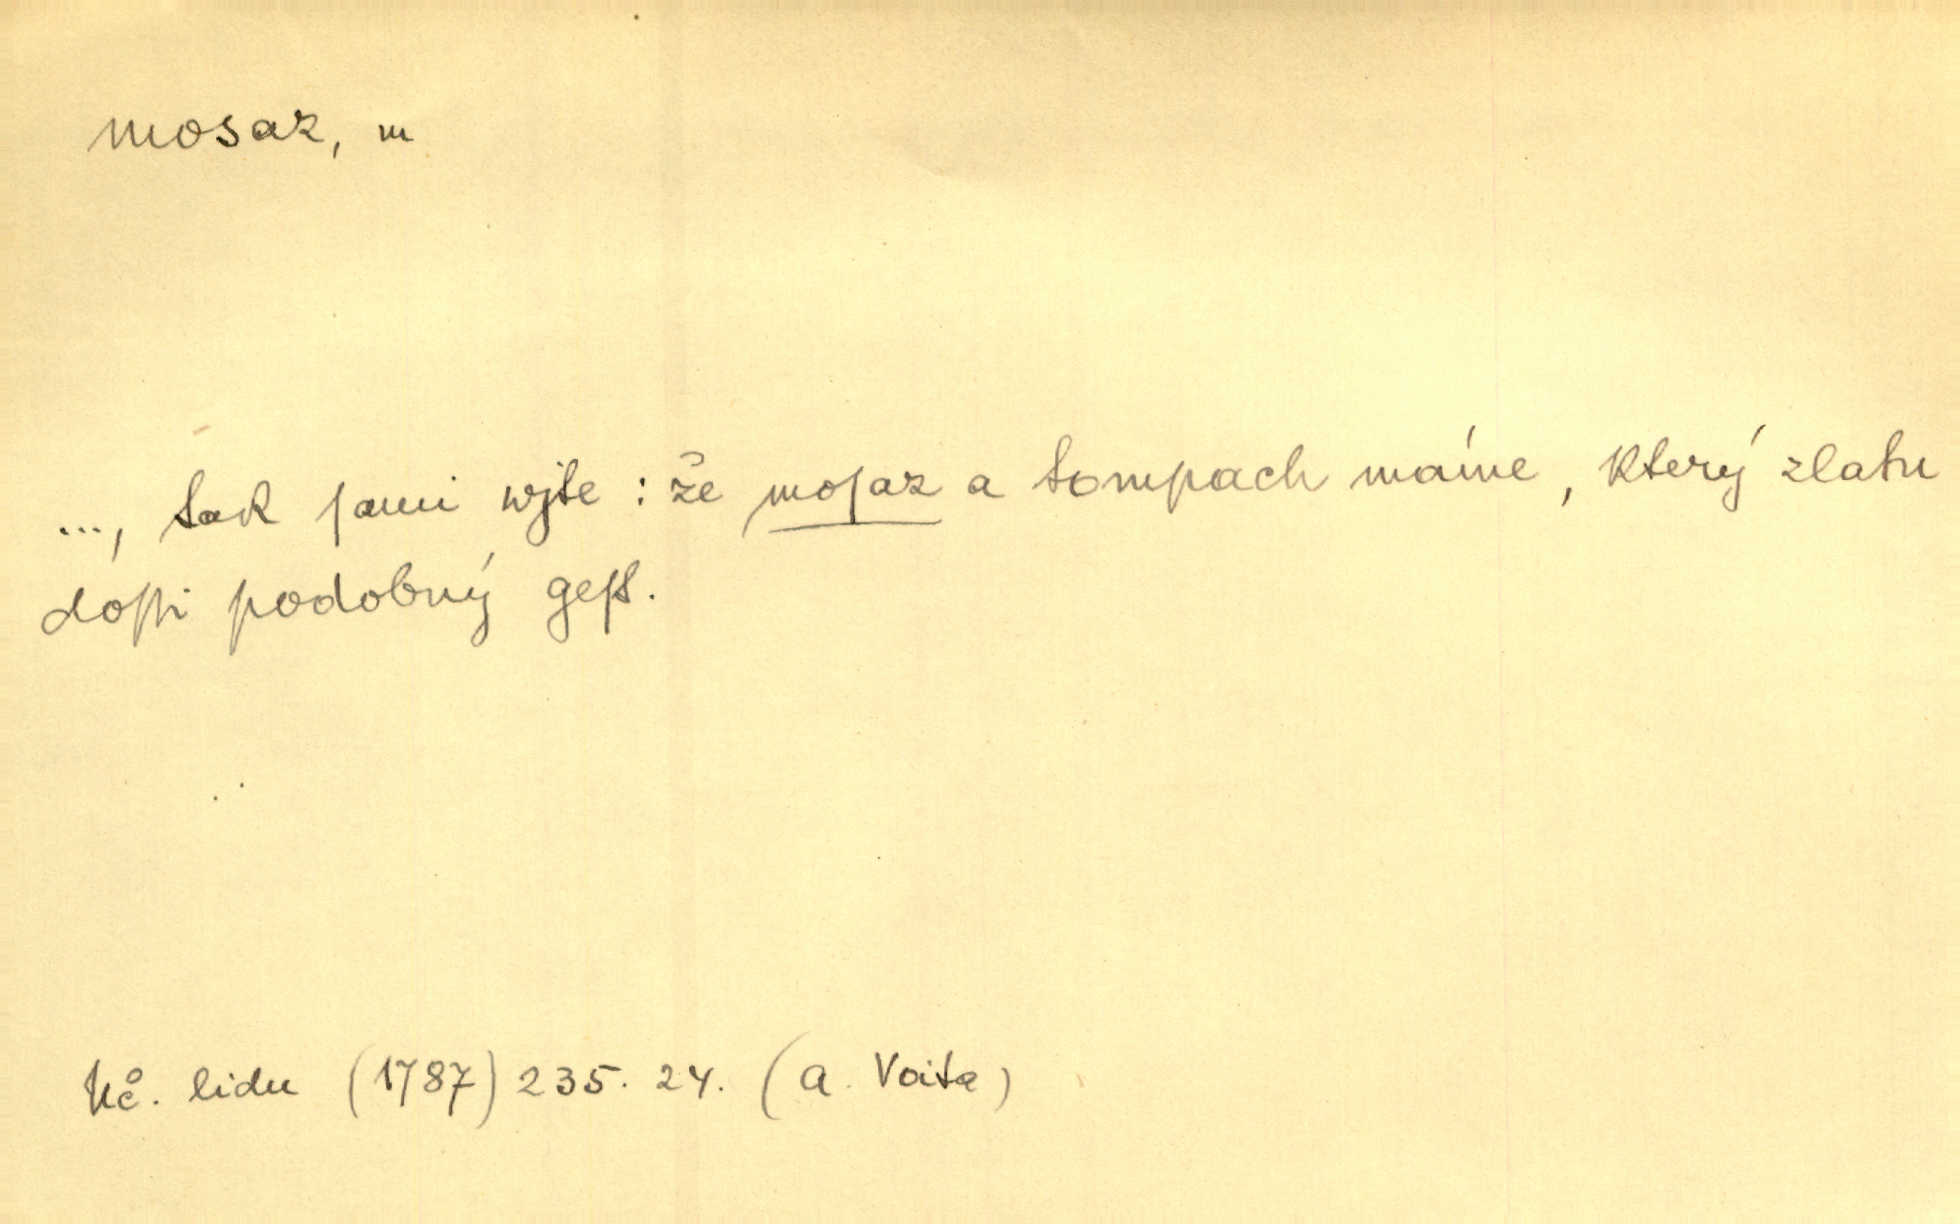 mosaz, m
..., tak ſami wjte : že moſaz a tompach máme, který zlatu
doſti podobný geſt.
Uč. lidu (1787) 235. 24. (A. Voita)